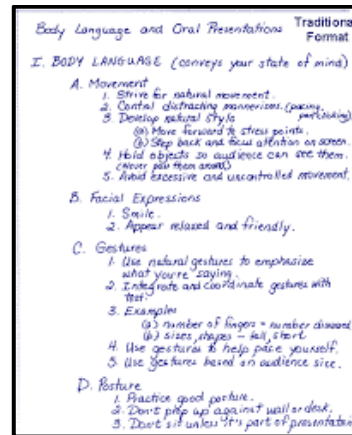 Body Language and Oral Presentations
Traditional
Format
I. BODY LANGUAGE (conveys your state of mind)
A. Movement
1. Strive for natural movement.
2. Control distracting mannerisms. (pacing,
3. Develop natural style
(a) Move forward to stress points.
(b) Step back and focus attention on screen.
4. Hold objects so audience can see them.
(Never pass them around)
5. Avoid excessive and uncontrolled movement.
B. Facial Expressions
1. Smile.
2. Appear relaxed and friendly.
C. Gestures
1. Use natural gestures to emphasize
what you're saying.
2. Integrate and coordinate gestures with
text.
3. Examples
(a) number of fingers = number discussed
(b) sizes, shapes - tall, short
4. Use gestures to help pace yourself.
5. Use gestures based on audience size.
D. Posture
1. Practice good posture.
2. Don't prop up against wall or desk.
3. Don't sit unless it's part of presentation